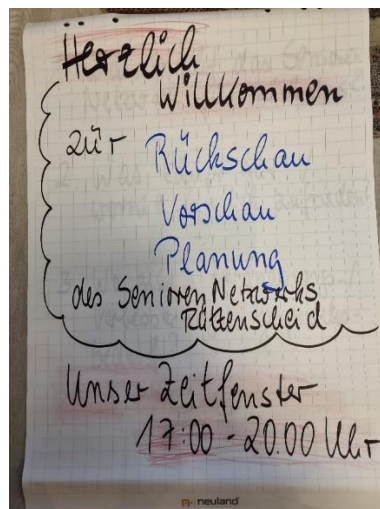 Herzlich
Willkommen
zur Rückschau
Vorschau
Planung
des Senioren Netzwerks
Rüttenscheid
Unser Zeitfenster
17:00 - 20.00 Uhr
neuland